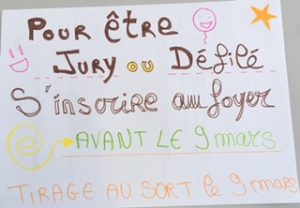 POUR ÊTRE
JURY ou DÉFILÉ
S'inscrire au foyer
AVANT LE 9 mars
TIRAGE AU SORT le 9 mars